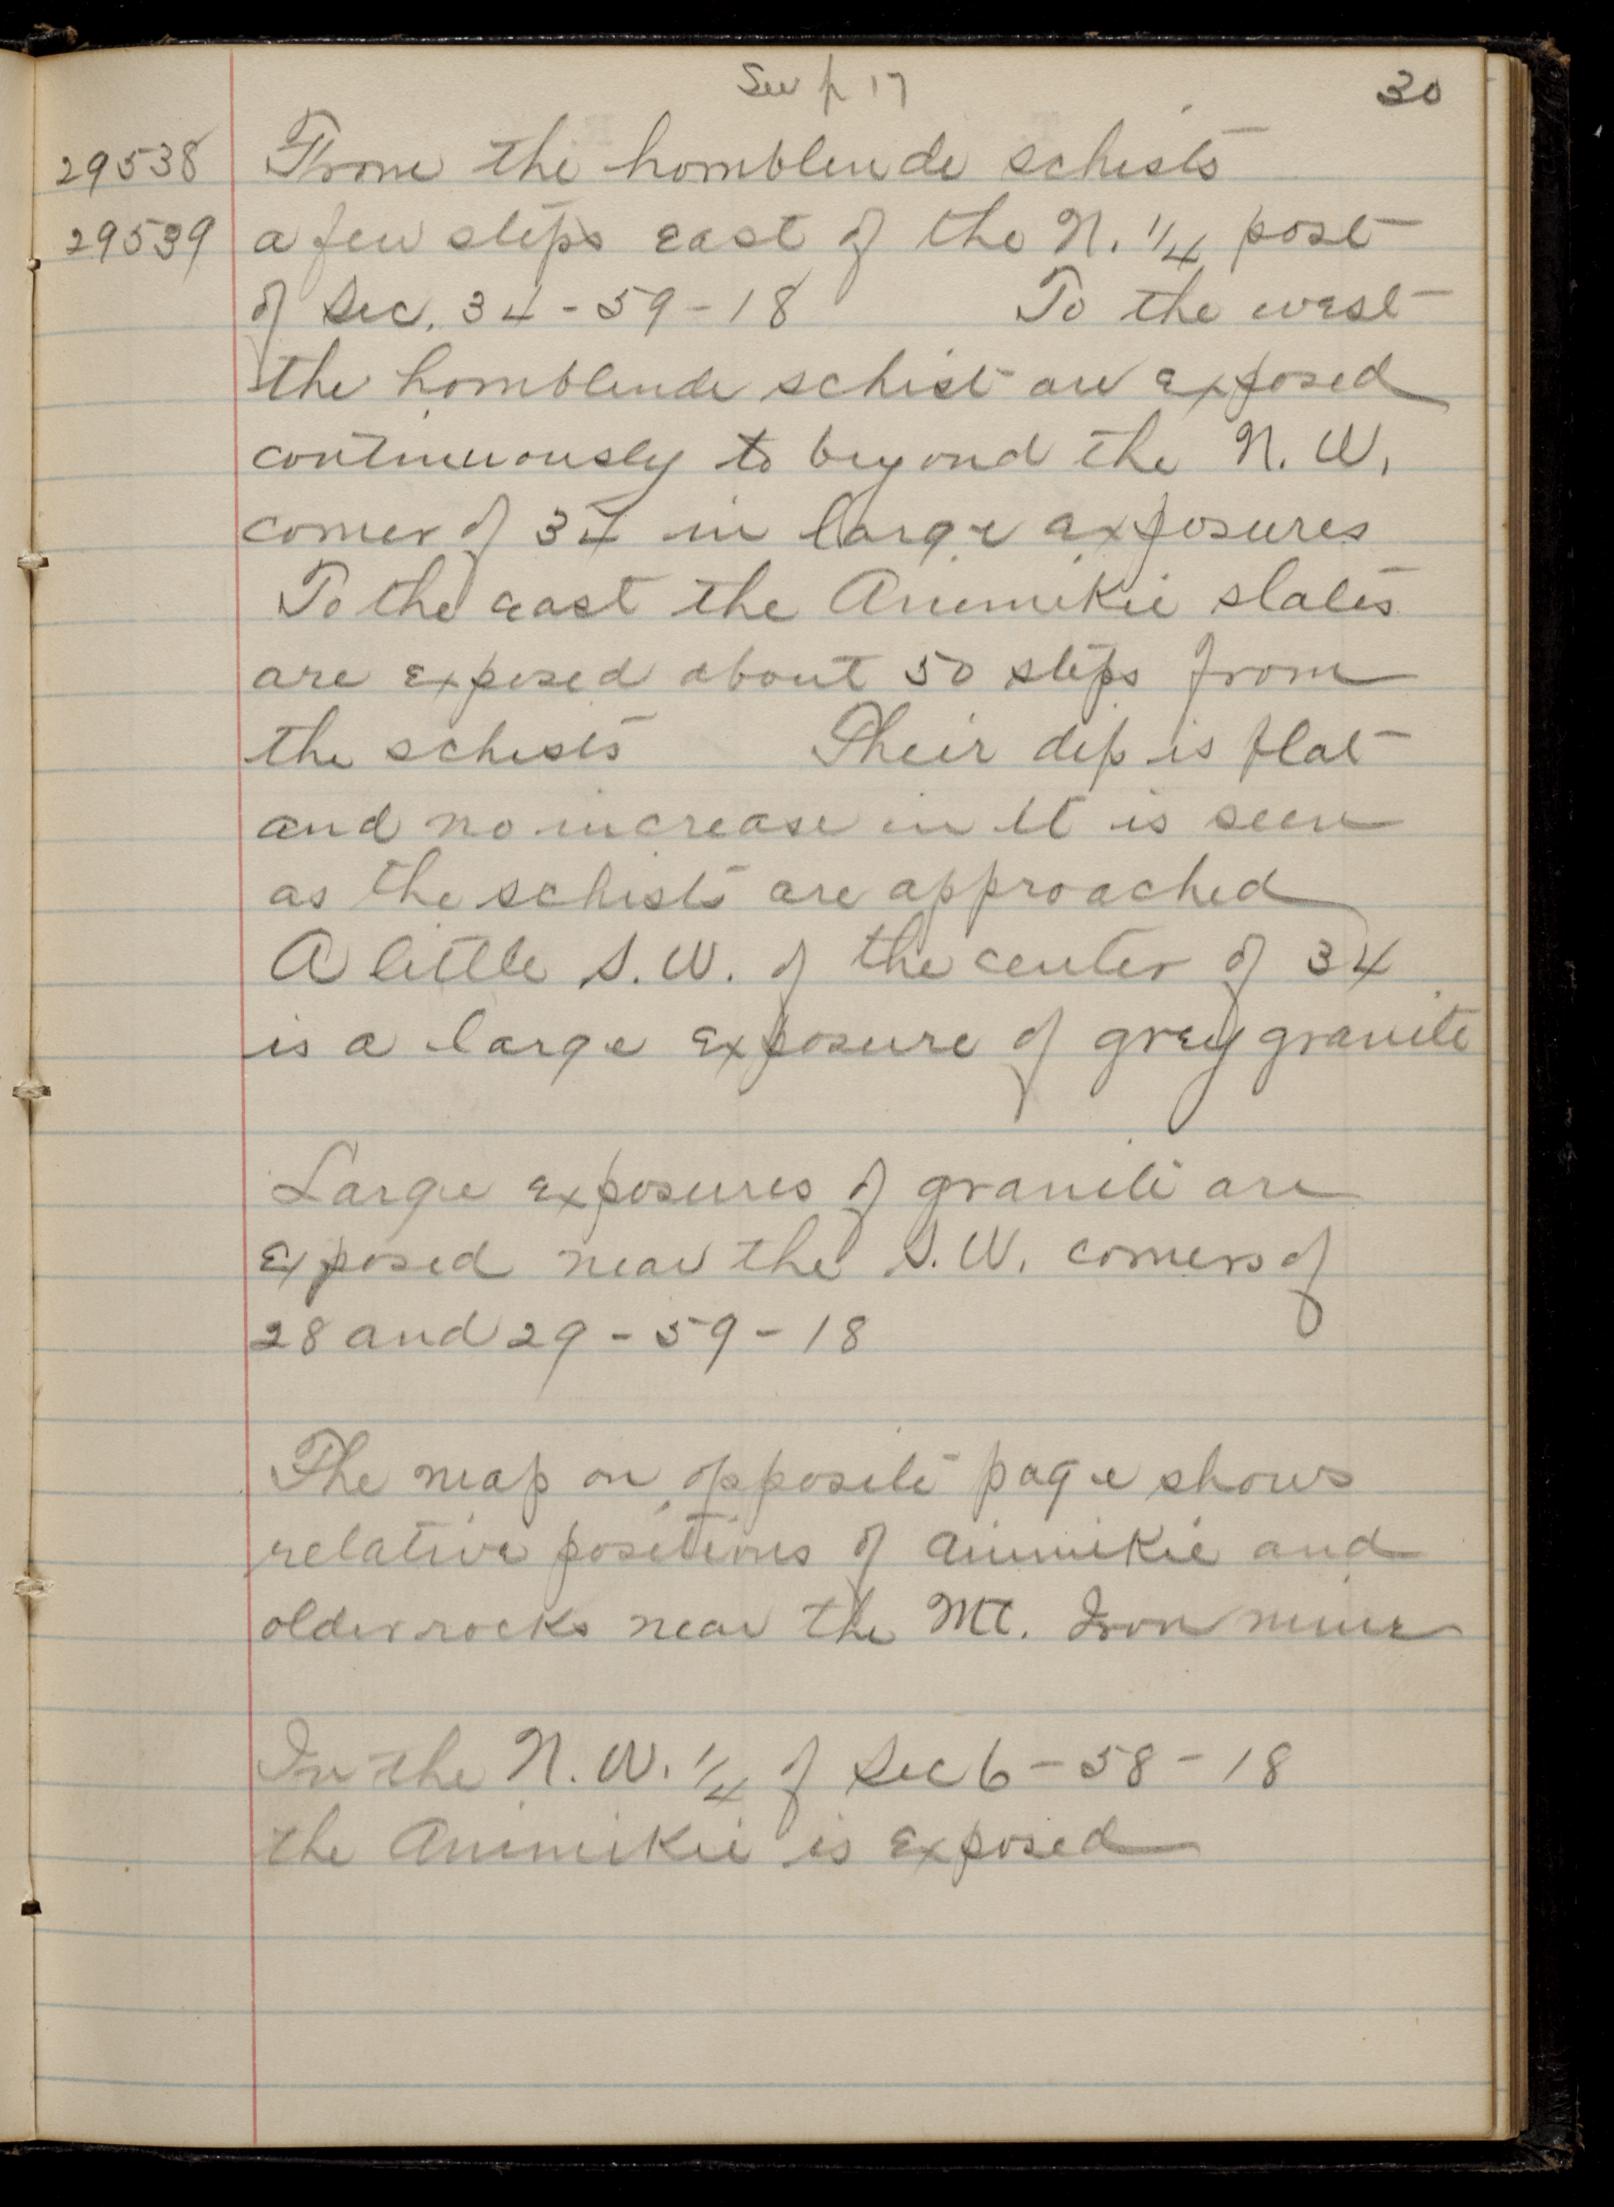 See p 17
30
29538 From the hornblende schists
29539 a few steps east of the N. 1/4 post
of Sec. 34-59-18 To the west
the hornblende schist are exposed
continuously to beyond the N. W.
corner of 34 in large exposures
To the east the Animikie slates
are exposed about 50 steps from
the schists Their dip is flat
and no increase in it is seen
as the schists are approached
A little S.W. of the center of 34
is a large exposure of grey granite
Large exposures of granite are
exposed near the S.W. corners of
28 and 29-59-18
The map on opposite page shows
relative positions of Animikie and
older rocks near the Mt. Iron mine
In the N.W. 1/4 of Sec 6-58-18
the Animikie is exposed